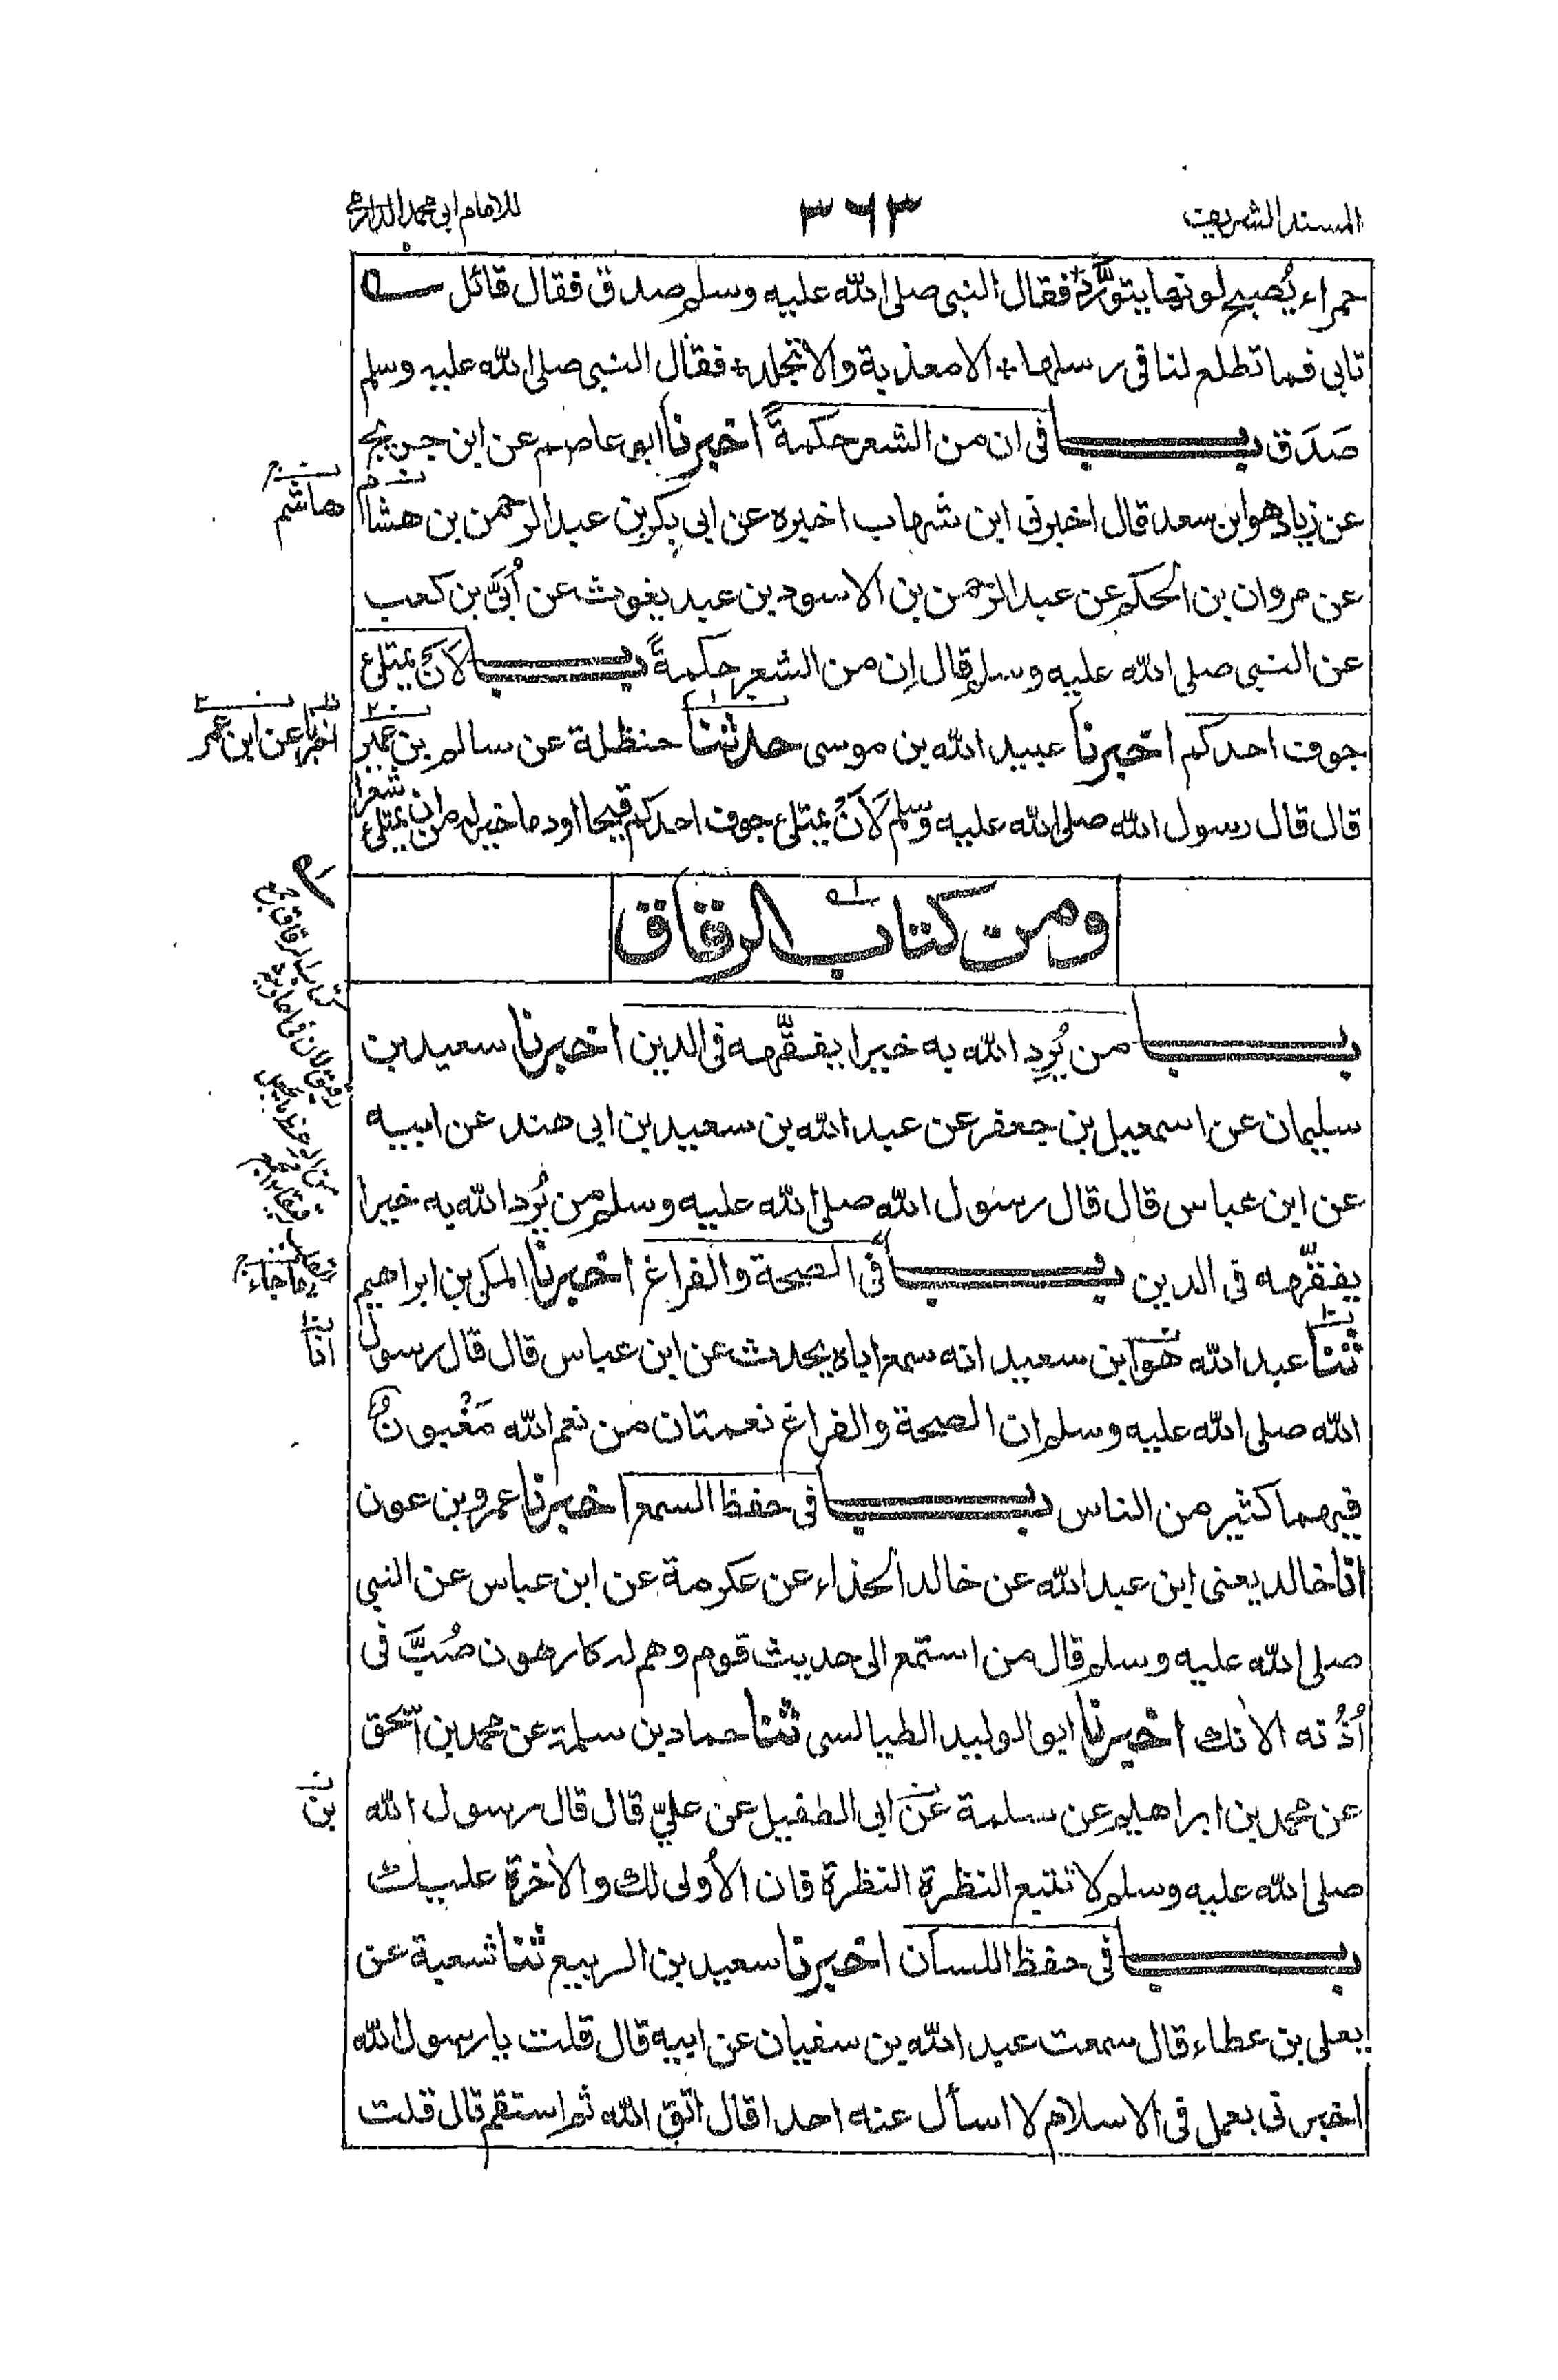 المسند الشريف
٣٦٣
للامام ابي محمد الدارمي
حمراء يُصبح لونها يتورّد فقال النبى صلى الله عليه وسلم صدق فقال قائل
تابى فما تطلع لنا فى رسلها * الا معذبة والا تجلد * فقال النبى صلى الله عليه وسلم
صَدَق باب فى ان من الشعر حكمةً اخبرنا ابو عاصم عن ابن جريج
عن زياد هو ابن سعد قال اخبرنى ابن شهاب اخبره عن ابى بكر بن عبد الرحمن بن هشام
هاشم
عن مروان بن الحكم عن عبد الرحمن بن الاسود بن عبد يغوث عن اُبَىّ بن كعب
عن النبى صلى الله عليه وسلم قال اِن من الشعر حكمةً باب لاَنْ يمتلئ
جوف احدكم اخبرنا عبيد الله بن موسى حدثنا حنظلة عن سالم بن عمير
اخبرنا عن ابن عمر
قال قال رسول الله صلى الله عليه وسلم لَاَنْ يمتلئ جوف احدكم قيحا او دما خير له من ان يمتلئ شعرا
ومن كتاب الرقاق
باب من يُرِد الله به خيرا يفقّهه فى الدين اخبرنا سعيد بن
سليمان عن اسمعيل بن جعفر عن عبد الله بن سعيد بن ابى هند عن ابيه
عن ابن عباس قال قال رسول الله صلى الله عليه وسلم من يُرِد الله به خيرا
يفقّهه فى الدين باب فى الصحة والفراغ اخبرنا المكى بن ابراهيم
ما جاء
ثنا عبد الله هو ابن سعيد انه سمع اباه يحدث عن ابن عباس قال قال رسول
انا
الله صلى الله عليه وسلم ان الصحة والفراغ نعمتان من نعم الله مَغْبونٌ
فيهما كثير من الناس باب فى حفظ السمع اخبرنا عمرو بن عون
انا خالد يعنى ابن عبد الله عن خالد الحذاء عن عكرمة عن ابن عباس عن النبي
صلى الله عليه وسلم قال من استمع الى حديث قوم وهم له كارهون صُبَّ فى
اُذُنه الاٰنك اخبرنا ابو الوليد الطيالسى ثنا حماد بن سلمة عن محمد بن اسحق
عن محمد بن ابراهيم عن سلمة عن ابى الطفيل عن علىّ قال قال رسول الله
بن
صلى الله عليه وسلم لا تتبع النظرة النظرة فان الأولى لك والاٰخرة عليك
باب فى حفظ اللسان اخبرنا سعيد بن الربيع ثنا شعبة عن
يعلى بن عطاء قال سمعت عبد الله بن سفيان عن ابيه قال قلت يا رسول الله
اخبرنى بعمل فى الاسلام لا اسأل عنه احدا قال اتق الله ثم استقم قال قلت